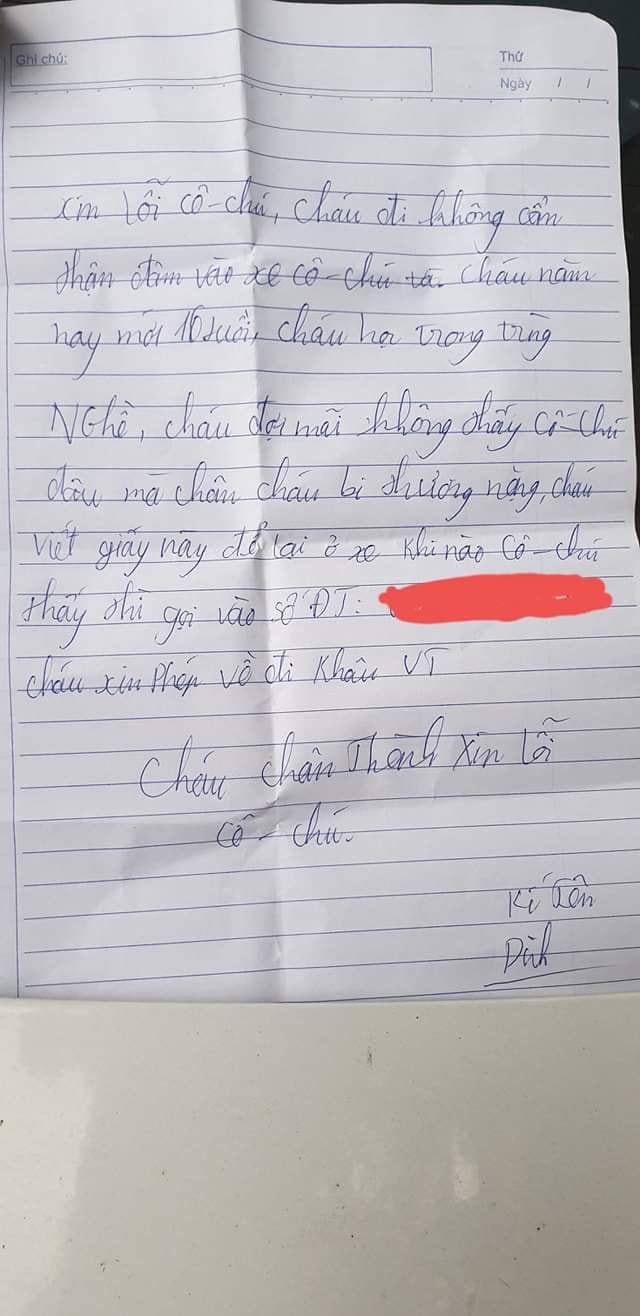 Ghi chú:
Thứ
Ngày / /
xin lỗi cô-chú, cháu đi không cẩn
thận đâm vào xe cô-chú ạ. cháu năm
nay mới 16 tuổi, cháu học trong trừg
NGhề, cháu đợi mãi không thấy Cô-Chú
đâu mà chân cháu bị thương nặng, cháu
viết giấy này để lại ở xe Khi nào Cô-chú
thấy thì gọi vào số ĐT:
cháu xin Phép về đi Khâu VT
Cháu chân Thành Xin lỗi
cô-chú.
Kí tên